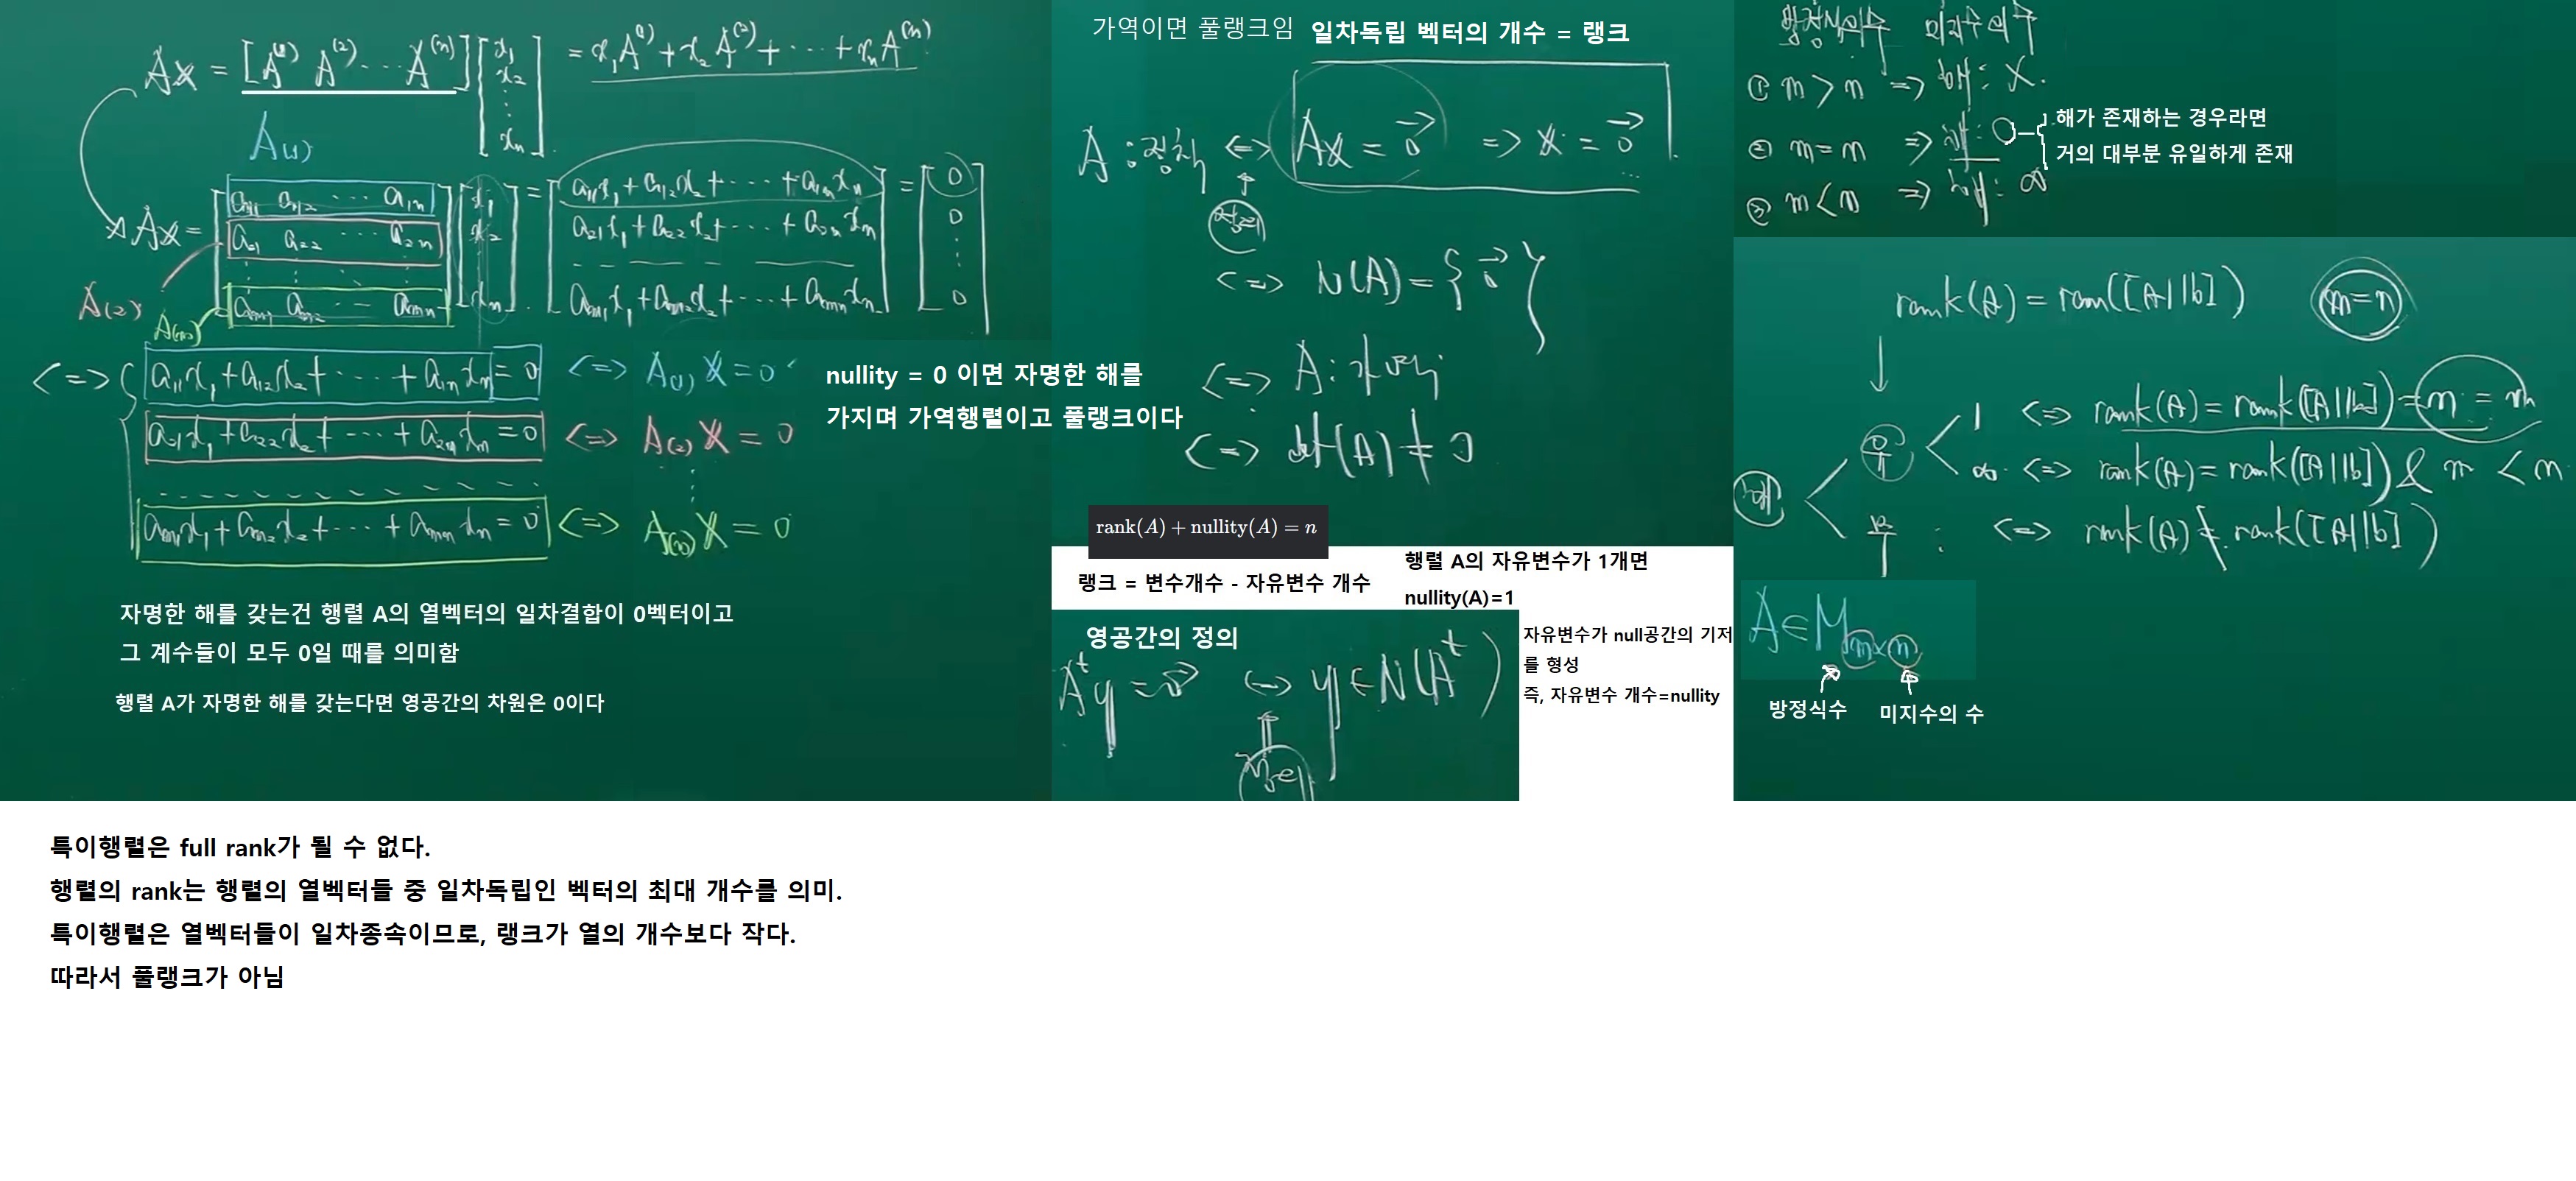 Ax = [A⁽¹⁾ A⁽²⁾ ⋯ A⁽ⁿ⁾] [x₁ x₂ ⋮ xₙ] = x₁A⁽¹⁾ + x₂A⁽²⁾ + ⋯ + xₙA⁽ⁿ⁾
A₍₁₎
Ax = [a₁₁ a₁₂ ⋯ a₁ₙ] [x₁] = [a₁₁x₁ + a₁₂x₂ + ⋯ + a₁ₙxₙ] = [0]
[a₂₁ a₂₂ ⋯ a₂ₙ] [x₂] [a₂₁x₁ + a₂₂x₂ + ⋯ + a₂ₙxₙ] [0]
[aₘ₁ aₘ₂ ⋯ aₘₙ] [xₙ] [aₘ₁x₁ + aₘ₂x₂ + ⋯ + aₘₙxₙ] [0]
A₍₂₎
A₍ₘ₎
<=> { a₁₁x₁ + a₁₂x₂ + ⋯ + a₁ₙxₙ = 0 <=> A₍₁₎X = 0
a₂₁x₁ + a₂₂x₂ + ⋯ + a₂ₙxₙ = 0 <=> A₍₂₎X = 0
aₘ₁x₁ + aₘ₂x₂ + ⋯ + aₘₙxₙ = 0 <=> A₍ₘ₎X = 0
자명한 해를 갖는건 행렬 A의 열벡터의 일차결합이 0벡터이고
그 계수들이 모두 0일 때를 의미함
행렬 A가 자명한 해를 갖는다면 영공간의 차원은 0이다
nullity = 0 이면 자명한 해를
가지며 가역행렬이고 풀랭크이다
가역이면 풀랭크임
일차독립 벡터의 개수 = 랭크
A : 정칙 <=> Ax = 0⃗ => x = 0⃗
<=> N(A) = {0⃗}
<=> A : 가역
<=> det(A) ≠ 0
rank(A) + nullity(A) = n
랭크 = 변수개수 - 자유변수 개수
행렬 A의 자유변수가 1개면
nullity(A)=1
영공간의 정의
Aᵗy = 0⃗ <=> y ∈ N(Aᵗ)
정의
자유변수가 null공간의 기저
를 형성
즉, 자유변수 개수=nullity
방정식의수 미지수의수
① m > n => 해 : X.
② m = n => 해 : O
③ m < n => 해 : ∞
해가 존재하는 경우라면
거의 대부분 유일하게 존재
rank(A) = ran([A|b]) m=n
해
유 1 <=> rank(A) = rank([A|b]) = m = n
∞ <=> rank(A) = rank([A|b]) & m < n
무 : <=> rank(A) ≠ rank([A|b])
A ∈ Mₘₓₙ
방정식수 미지수의 수
특이행렬은 full rank가 될 수 없다.
행렬의 rank는 행렬의 열벡터들 중 일차독립인 벡터의 최대 개수를 의미.
특이행렬은 열벡터들이 일차종속이므로, 랭크가 열의 개수보다 작다.
따라서 풀랭크가 아님